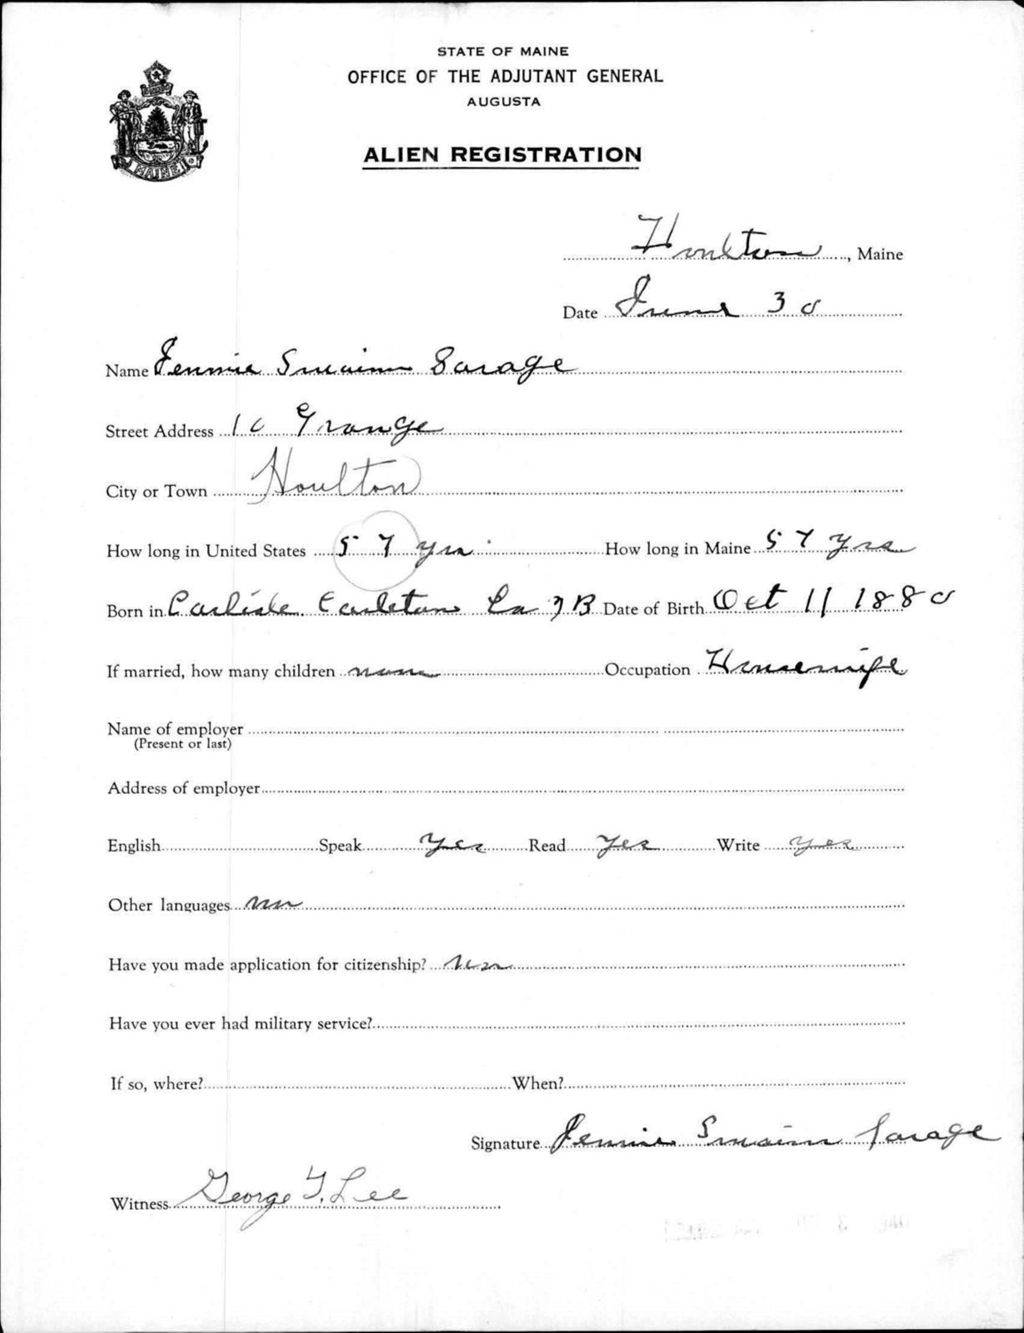 STATE OF MAINE
OFFICE OF THE ADJUTANT GENERAL
AUGUSTA
ALIEN REGISTRATION
MAINE
Houlton, Maine
Date June 30
Name Jennie Savage
Street Address 10 Grange
City or Town Houlton
How long in United States 57 yrs How long in Maine 57 yrs
Born in Carlisle Carleton Co NB Date of Birth Oct 11 1880
If married, how many children none Occupation Housewife
Name of employer
(Present or last)
Address of employer
English Speak Yes Read Yes Write yes
Other languages no
Have you made application for citizenship? no
Have you ever had military service?
If so, where? When?
Signature Jennie Savage
Witness George T. Lee